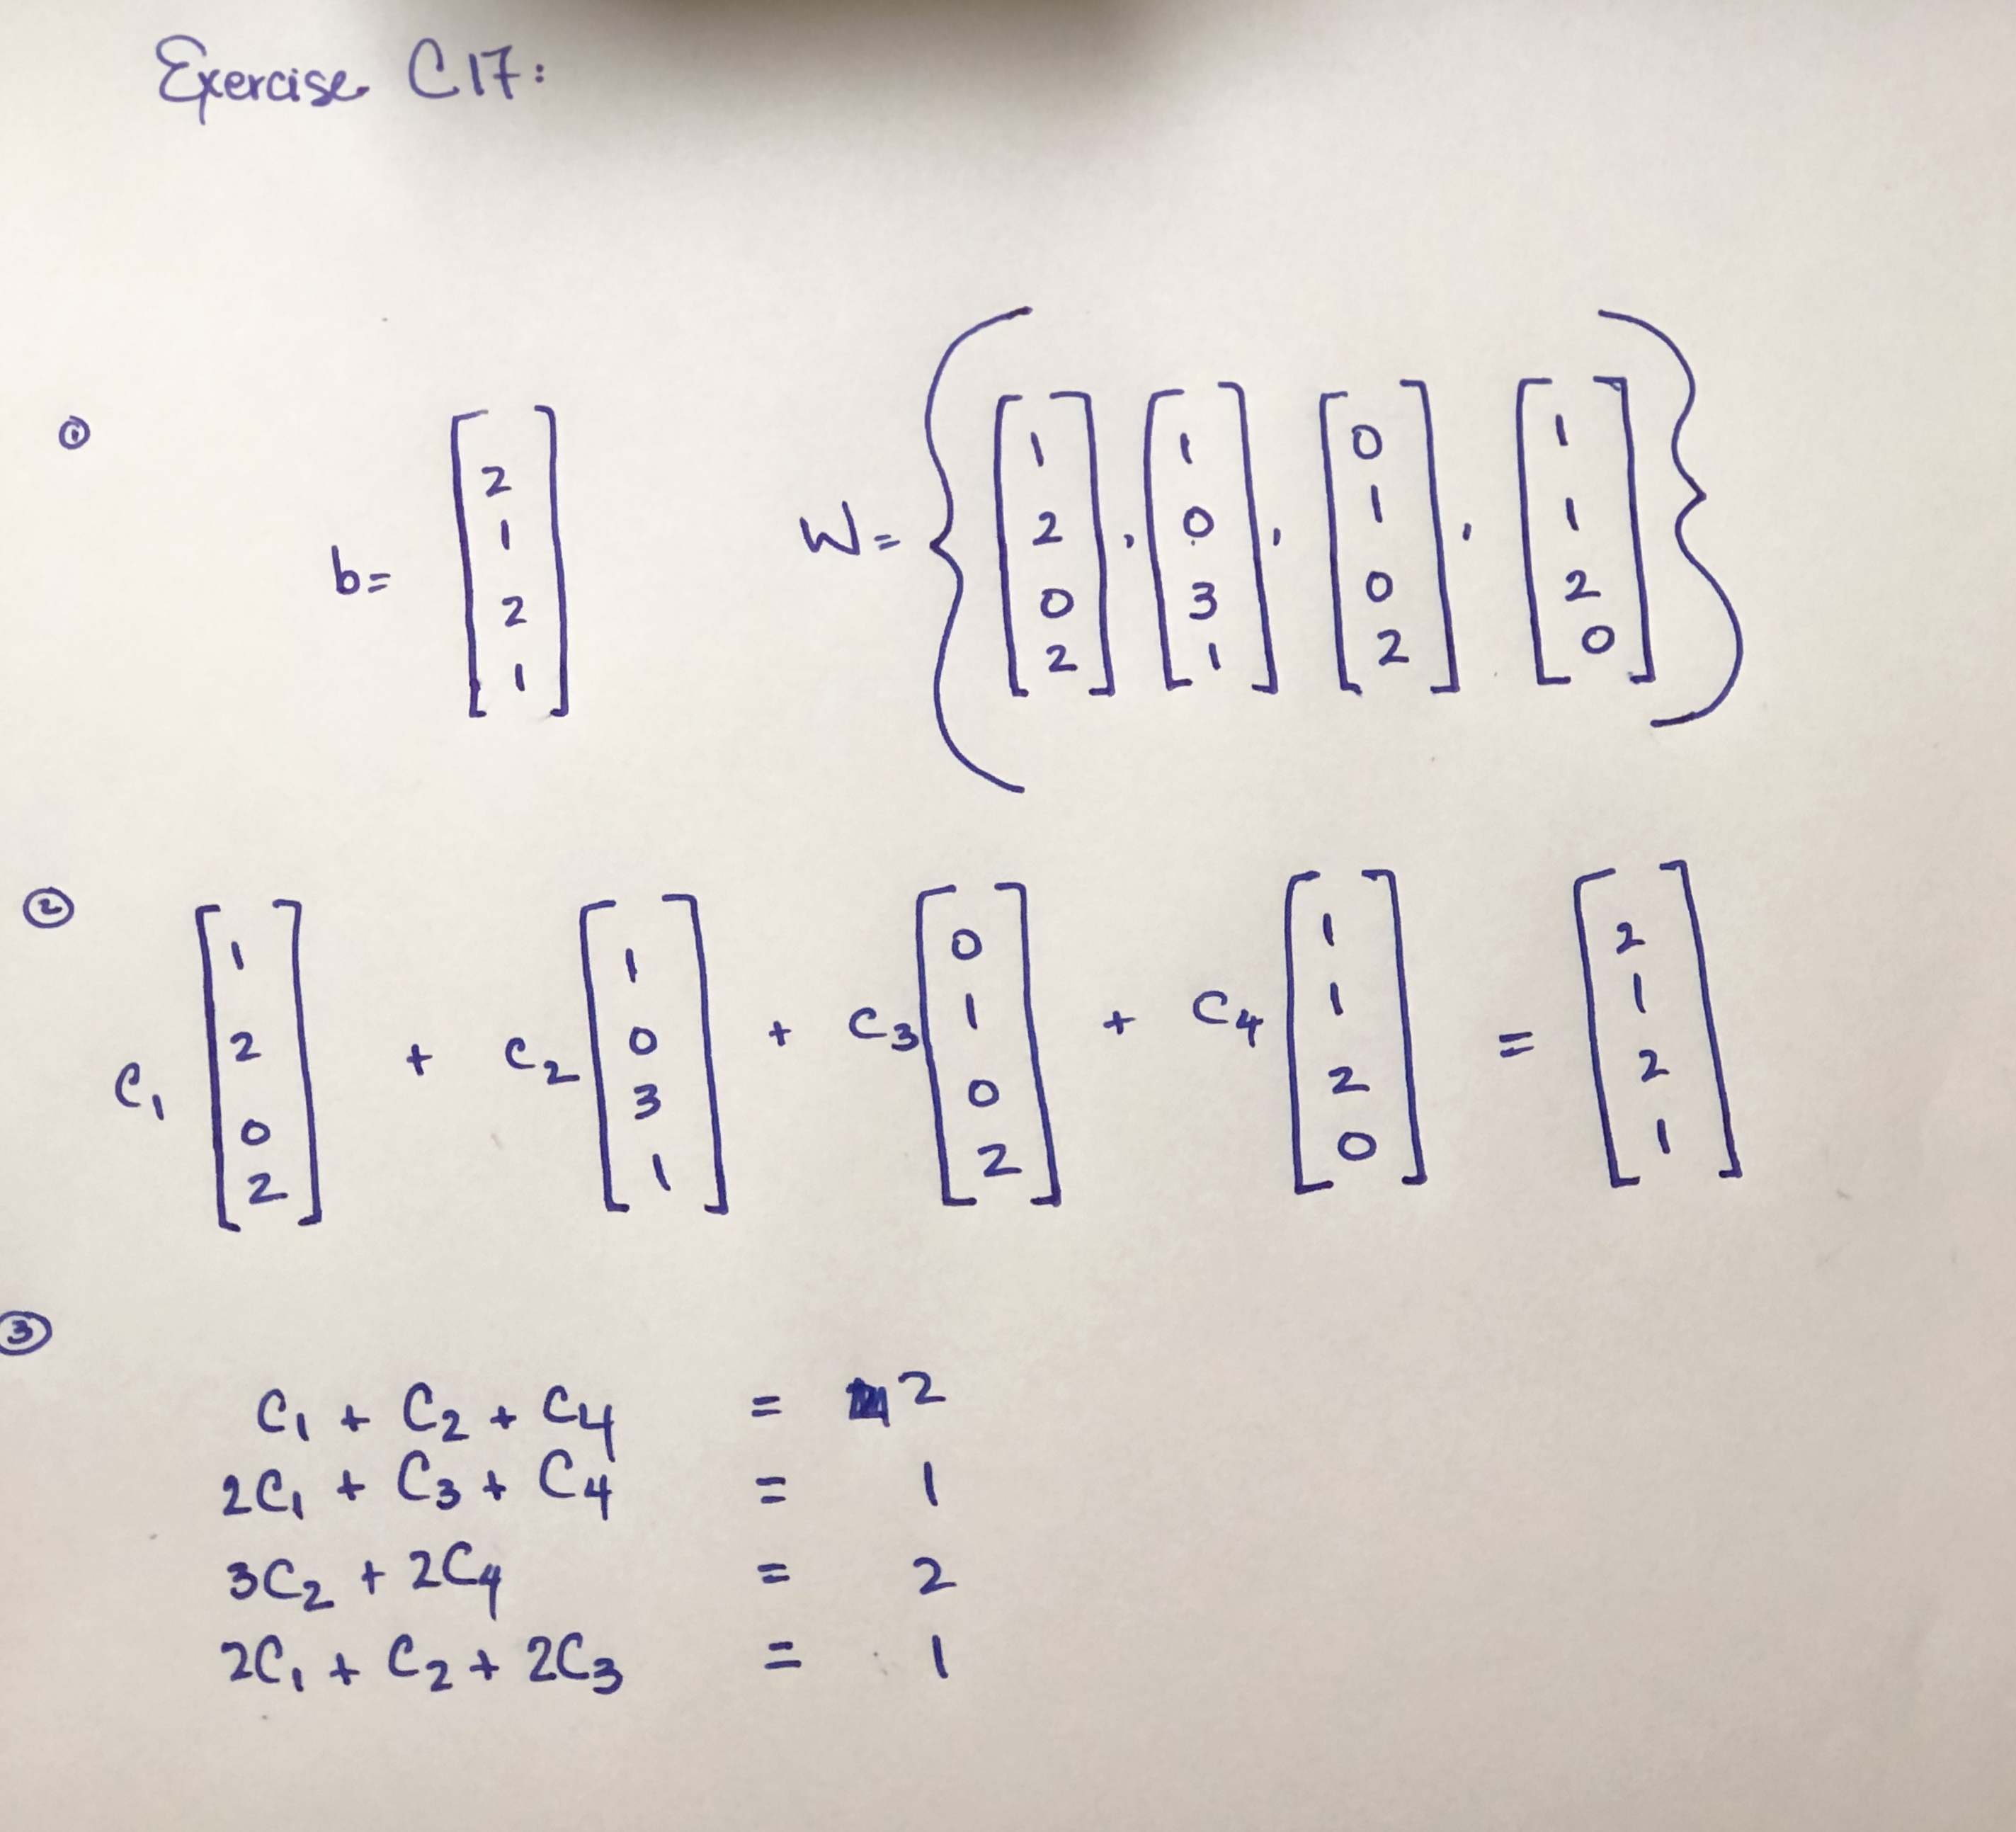 Exercise C17:
① b= [2 1 2 1] W= {[1 2 0 2], [1 0 3 1], [0 1 0 2], [1 1 2 0]}
② C1 [1 2 0 2] + C2 [1 0 3 1] + C3 [0 1 0 2] + C4 [1 1 2 0] = [2 1 2 1]
③
C1 + C2 + C4 = 2
2C1 + C3 + C4 = 1
3C2 + 2C4 = 2
2C1 + C2 + 2C3 = 1